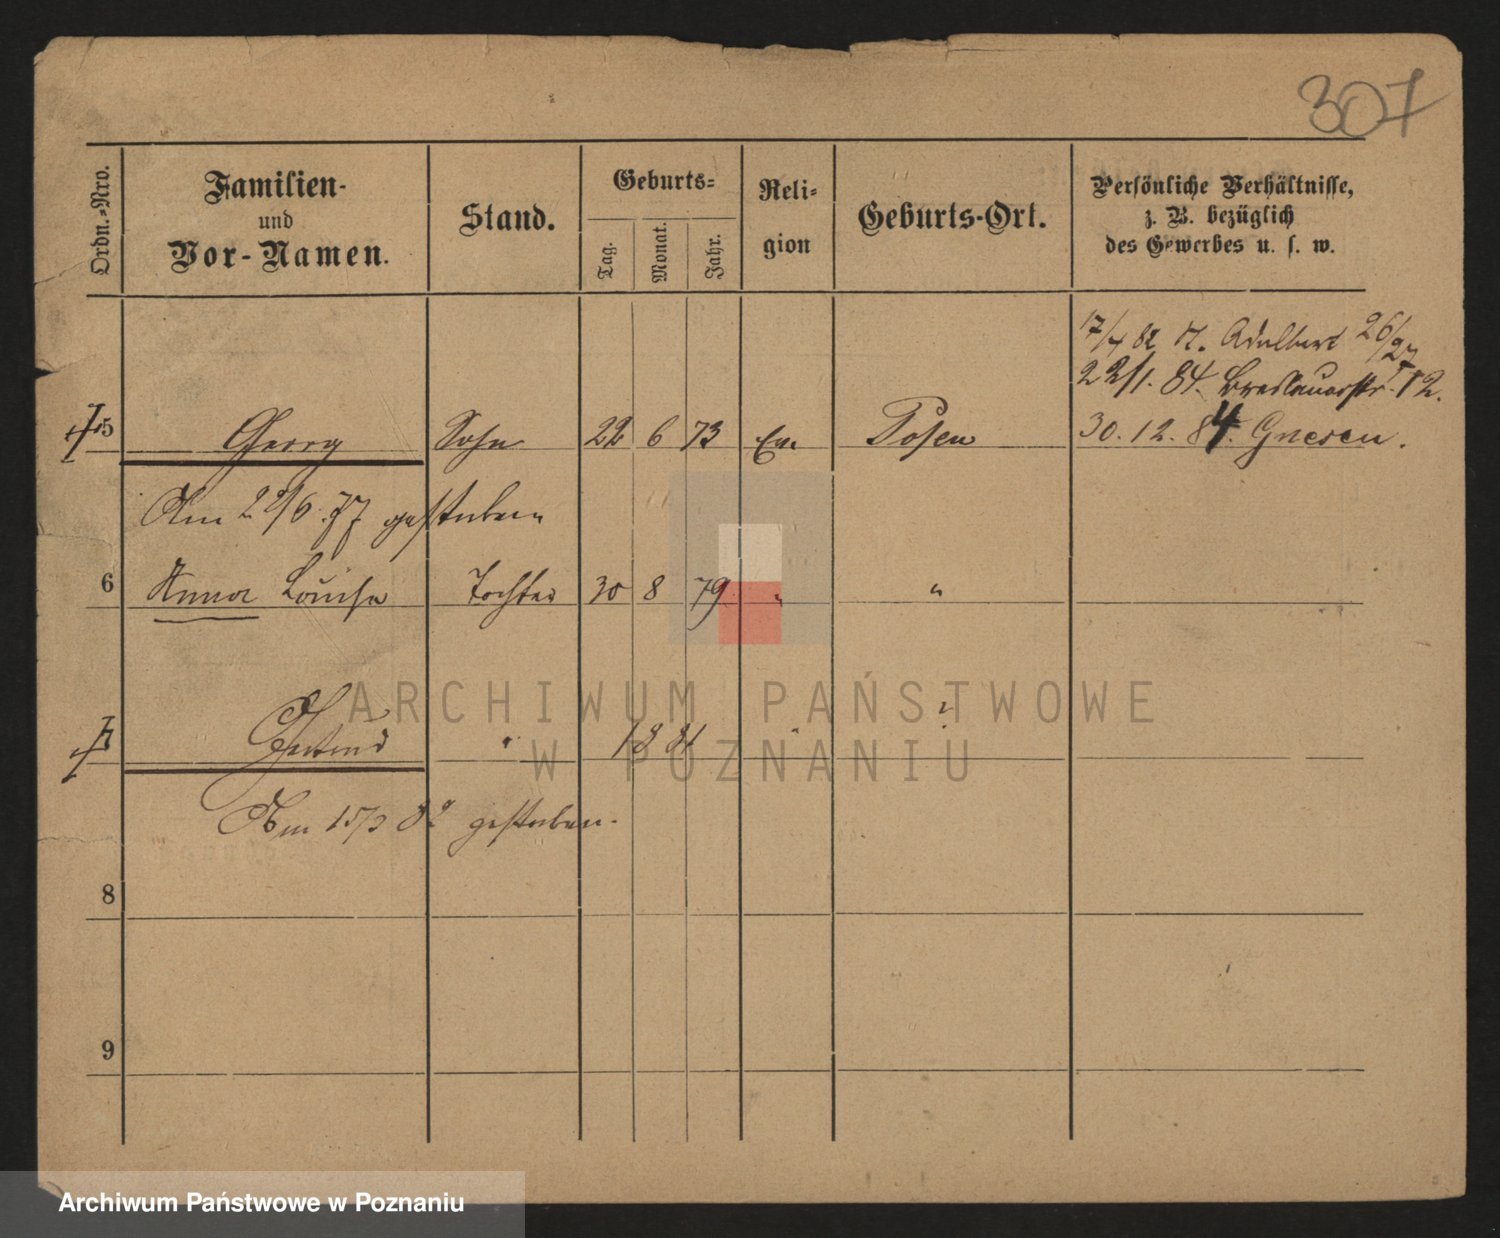 307
Ordn.-Nro.
Familien-
und
Vor-Namen.
Stand.
Geburts-
Tag.
Monat.
Jahr.
Reli-
gion
Geburts-Ort.
Persönliche Verhältnisse,
z. B. bezüglich
des Gewerbes u. s. w.
17/4 82 St. Adalbert 26/27
22/1. 84. Breslauerstr. 12.
30. 12. 84. Gnesen.
5 Georg Sohn 22 6 73 Ev. Posen
Am 22/6. 77 gestorben
6 Anna Louise Tochter 30 8 79 " "
Gertrud " 1881 " "
Am 15/3 82 gestorben.
8
9
ARCHIWUM PAŃSTWOWE
W POZNANIU
Archiwum Państwowe w Poznaniu